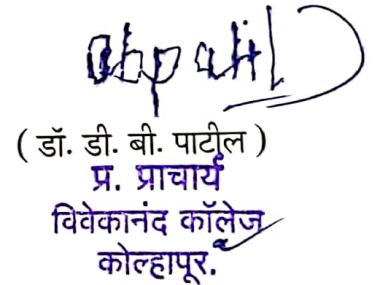 dbpatil
( डॉ. डी. बी. पाटील )
प्र. प्राचार्य
विवेकानंद कॉलेज
कोल्हापूर.